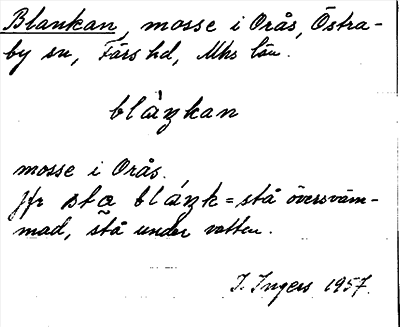 Blankan, mosse i Orås, Östra-
by sn, Färs hd, Mhs län.
bláŋkan
mosse i Orås.
Jfr sta bláŋk = stå översväm-
mad, stå under vatten.
I. Ingers 1957.